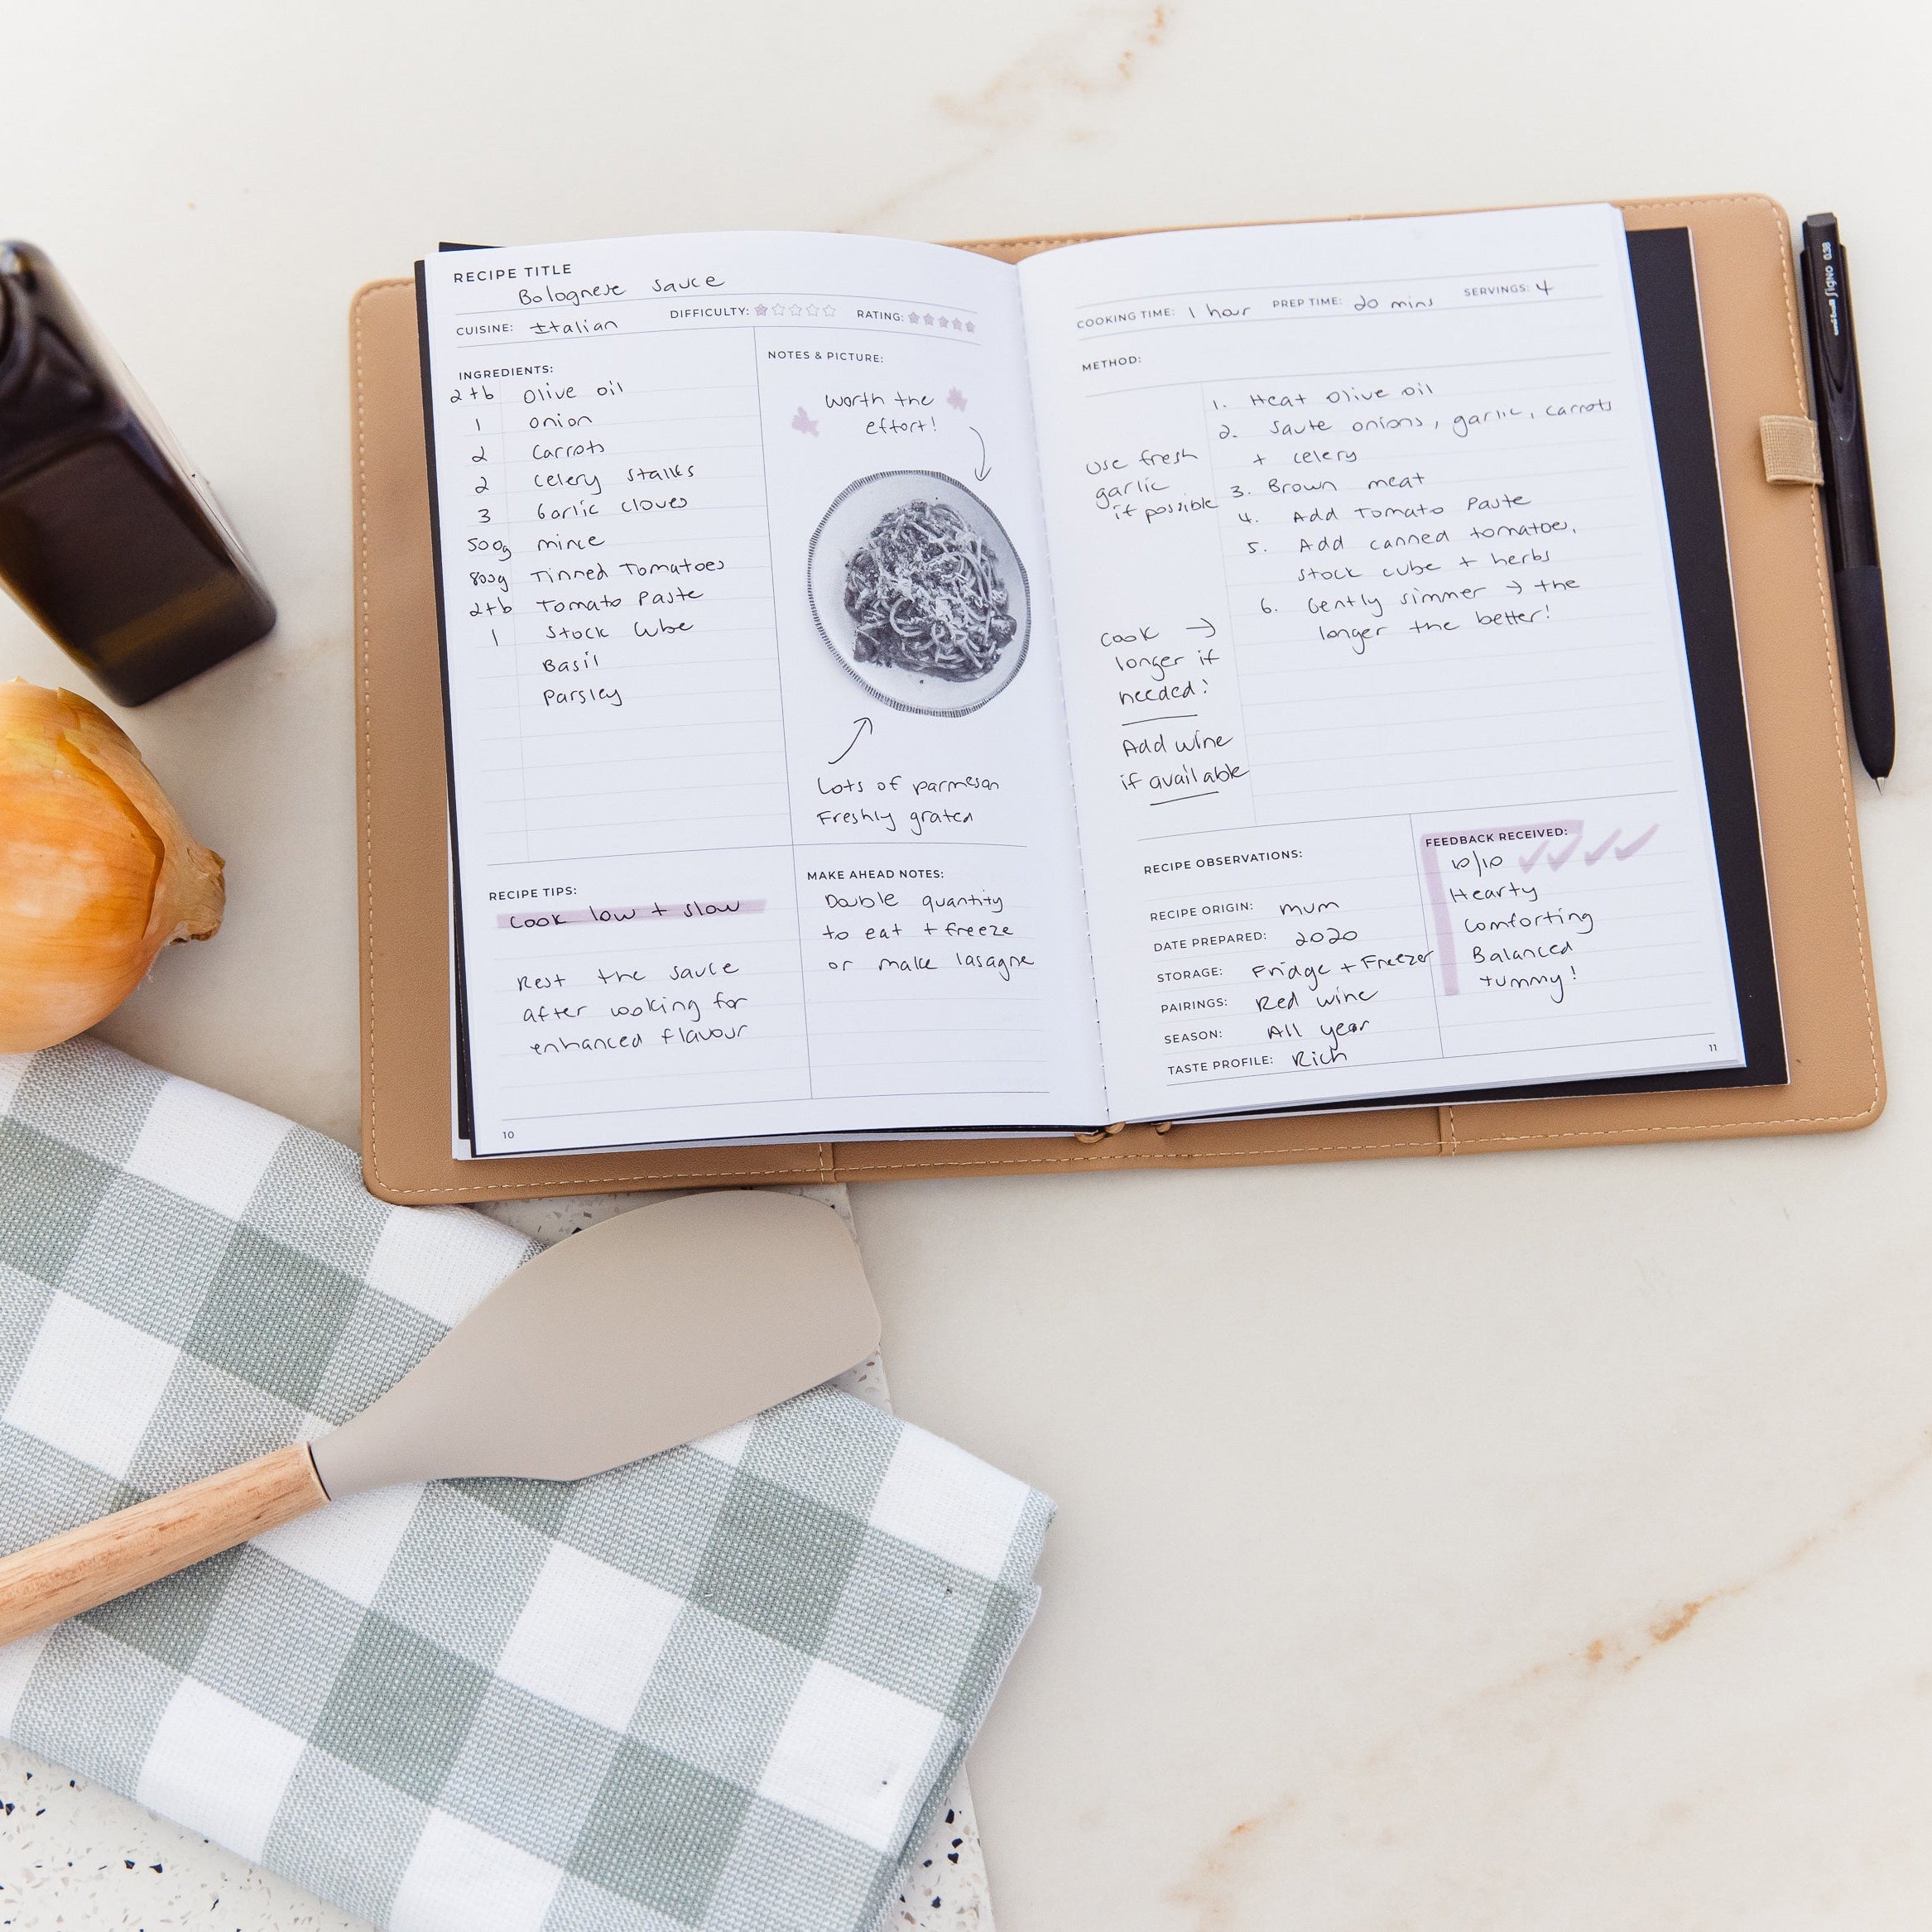 RECIPE TITLE
Bolognese sauce
CUISINE: Italian
DIFFICULTY:
RATING:
INGREDIENTS:
2 tb Olive oil
1 onion
2 carrots
2 celery stalks
3 Garlic cloves
500g mince
800g Tinned Tomatoes
2 tb Tomato Paste
1 Stock Cube
Basil
Parsley
NOTES & PICTURE:
Worth the
effort!
Lots of parmesan
Freshly grated
RECIPE TIPS:
Cook low + slow
Rest the sauce
after cooking for
enhanced flavour
MAKE AHEAD NOTES:
Double quantity
to eat + freeze
or make lasagne
10
COOKING TIME: 1 hour
PREP TIME: 20 mins
SERVINGS: 4
METHOD:
1. Heat Olive oil
2. Saute onions, garlic, carrots
+ celery
3. Brown meat
4. Add Tomato Paste
5. Add canned tomatoes,
stock cube + herbs
6. Gently simmer → the
longer the better!
Use fresh
garlic
if possible
Cook →
longer if
needed!
Add wine
if available
RECIPE OBSERVATIONS:
RECIPE ORIGIN: mum
DATE PREPARED: 2020
STORAGE: Fridge + Freezer
PAIRINGS: Red wine
SEASON: All year
TASTE PROFILE: Rich
FEEDBACK RECEIVED:
10/10
Hearty
Comforting
Balanced
Yummy!
11
uni-ball Signo 0.38